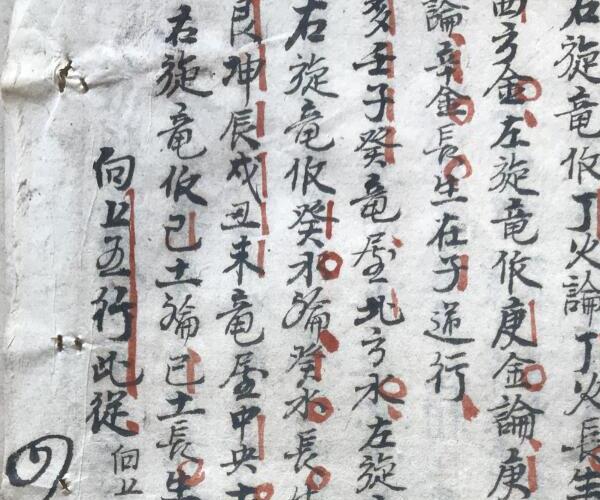 右旋竜依丁火論丁火長生
酉方金左旋竜依庚金論庚
論辛金長生在子逆行
亥壬子癸竜屋北方水左旋
右旋竜依癸水論癸水長生
艮坤辰戌丑未竜屋中央土
右旋竜依己土論己土長生
向上五行此從向上